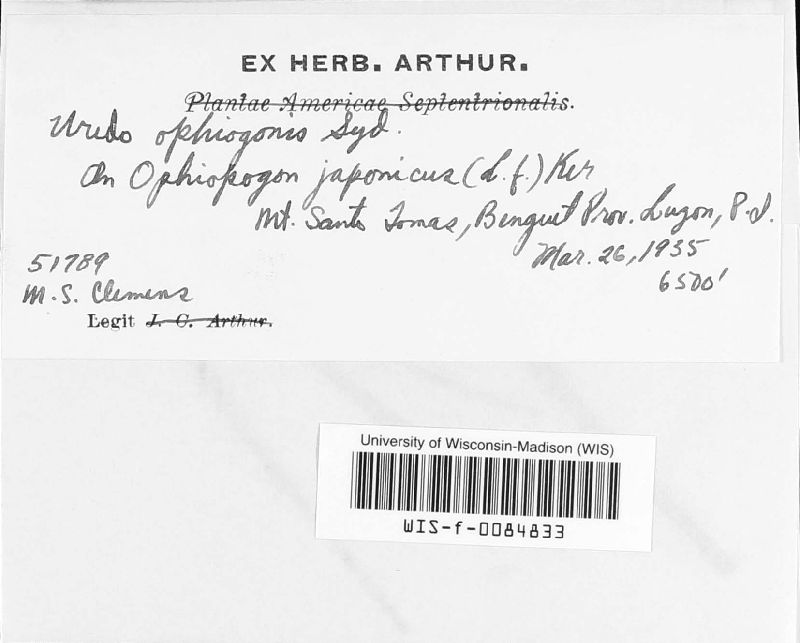 EX HERB. ARTHUR.
Plantae Americae Septentrionalis.
Uredo ophiogonis Syd.
On Ophiopogon japonicus (L. f.) Ker
Mt. Santo Tomas, Benguet Prov. Luzon, P.I.
Mar. 26, 1935
6500'
51789
M.S. Clemens
Legit J. C. Arthur.
University of Wisconsin-Madison (WIS)
WIS-f-0084833